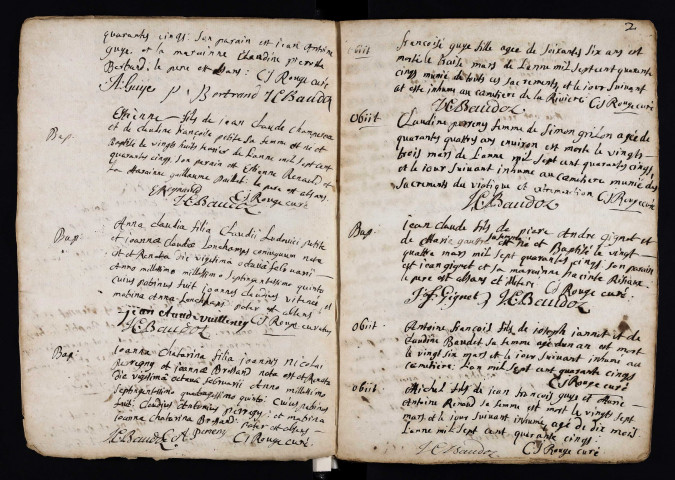 quarante cinq: son parain est jean Antoine
guye, et la maraine Claudine pierrette
Bertrand, le pere est absans: CJ Rouge curé
A Guyes P Bertrand JC Baudoz
Bap.
Estienne fils de jean claude
et de claudine francoise petite sa femme est né et
Baptisé le vingt huits fevrier de l'anne mil sept cent
quarante cinq, son parain est Etienne Renaud et
la maraine guillaume paillet: le pere est absans
E Reynaud CJ Rouge curé
JC Baudoz
Bap:
Anna claudia filia claudii Ludovici petite
et joanna claudia Lonchamps coniugum nata
et et Renata die vigesima octava februarii
Anno millesimo septingentesimo quinto
cuius patrinus fuit joannes claudius
matrina Anna Lonchamps pater est absans
jean claude vuillemey CJ Rouge curatus
JC Baudoz
Bap:
joanna chatarina filia joannis nicolai
perregny et joanna Brossard nata est et Renata
die vigesima octava februarii Anno millesimo
septingentesimo quadragesimo quinto: cuius patrinus
fuit claudius Antonius pierregy: et matrina
joanna chatarina Brossard: pater est absans
JC Baudoz CJ Rouge curé
2
Obiit
francoise guye fille agee de soixante six ans est
morte le traise mars de l'anne mil sept cent quarante
cinq munie de touts ces sacrements, et le jour suivant
at este inhume au cimetiere de la Riviere CJ Rouge curé
JC Baudoz
Obiit
Claudine perreny femme de simon grizon agee de
quarante quattre ans environ est morte le vingt
trois mars de l'anne mil sept cent quarante cinq
et le jour suivant inhume au cimetiere munie des
sacrements du viatique et extremonction CJ Rouge curé
JC Baudoz
Bap:
jean claude fils de piere Andre gignet et
de Marie sa femme est né et Baptisé le vingt
quatre mars mil sept quarante cinq son parain
est jean gignet et sa maraine hiacinte
le pere est absans et CJ Rouge curé
J J Gignet JC Baudoz
Obiit
Antoine francois fils de joseph jannet et de
claudine Baudet sa femme agé d'un an est mort
le vingt six mars et le jour suivant inhume au
cimetiere: l'an mil sept cent quarante cinq
CJ Rouge curé
Obiit
Michel fils de jean francois guye et Marie
Antoine Renaud sa femme est mort le vingt sept
mars et le jour suivant inhume, agé de dix mois
l'anne mil sept cent quarante cinq:
JC Baudoz CJ Rouge curé